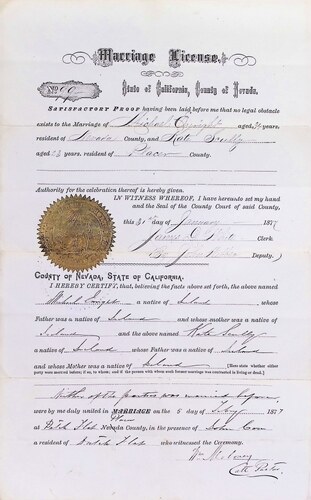 Marriage License.
State of California, County of Nevada.
SATISFACTORY PROOF having been laid before me that no legal obstacle
exists to the Marriage of Michael Enright aged years,
resident of Nevada County, and Kate Scully
aged years, resident of Placer County.
Authority for the celebration thereof is hereby given.
IN WITNESS WHEREOF, I have hereunto set my hand
and the Seal of the County Court of said County,
this 31st day of January 1877
Clerk
Deputy
COUNTY OF NEVADA, STATE OF CALIFORNIA.
I HEREBY CERTIFY, that, believing the facts above set forth, the above named
Michael Enright a native of Ireland whose
Father was a native of Ireland and whose mother was a native of
Ireland and the above named Kate Scully
a native of Ireland whose Father was a native of Ireland
and whose Mother was a native of Ireland [Here state whether either
party were married before; if so, to whom; and if the person with whom such former marriage was contracted is living or dead.]
Neither of the parties was married before,
were by me duly united in MARRIAGE on the 6 day of Feby 1877
at Dutch Flat Nevada County, in the presence of John
a resident of Dutch Flat who witnessed the Ceremony.
Wm